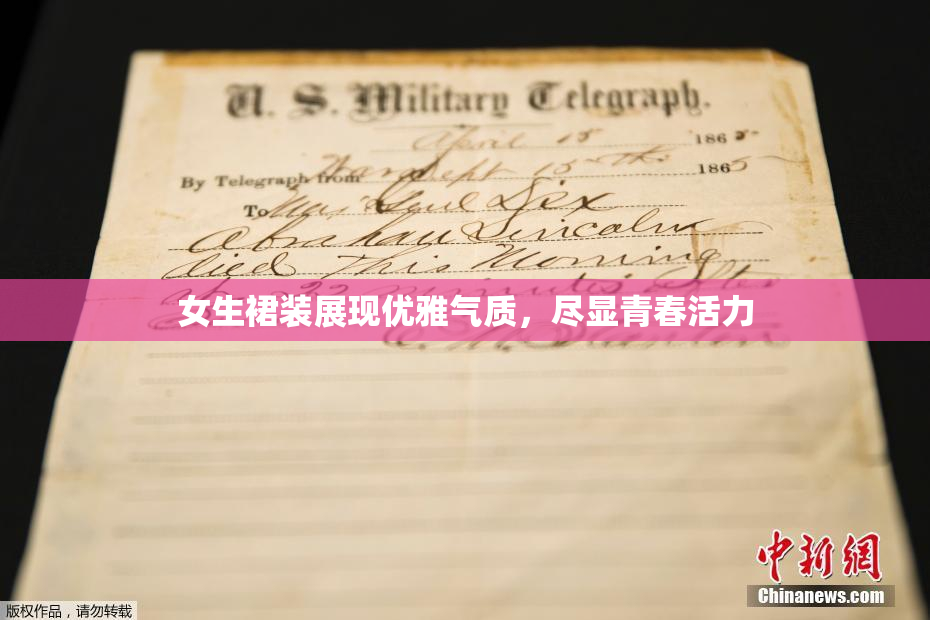 U. S. Military Telegraph.
April 15 1865
By Telegraph from War Dept 15th 1865
To Maj Genl Dix
Abraham Lincoln
died This Morning
22 minutes after
女生裙装展现优雅气质，尽显青春活力
E. M. Stanton
中新网
Chinanews.com
版权作品，请勿转载